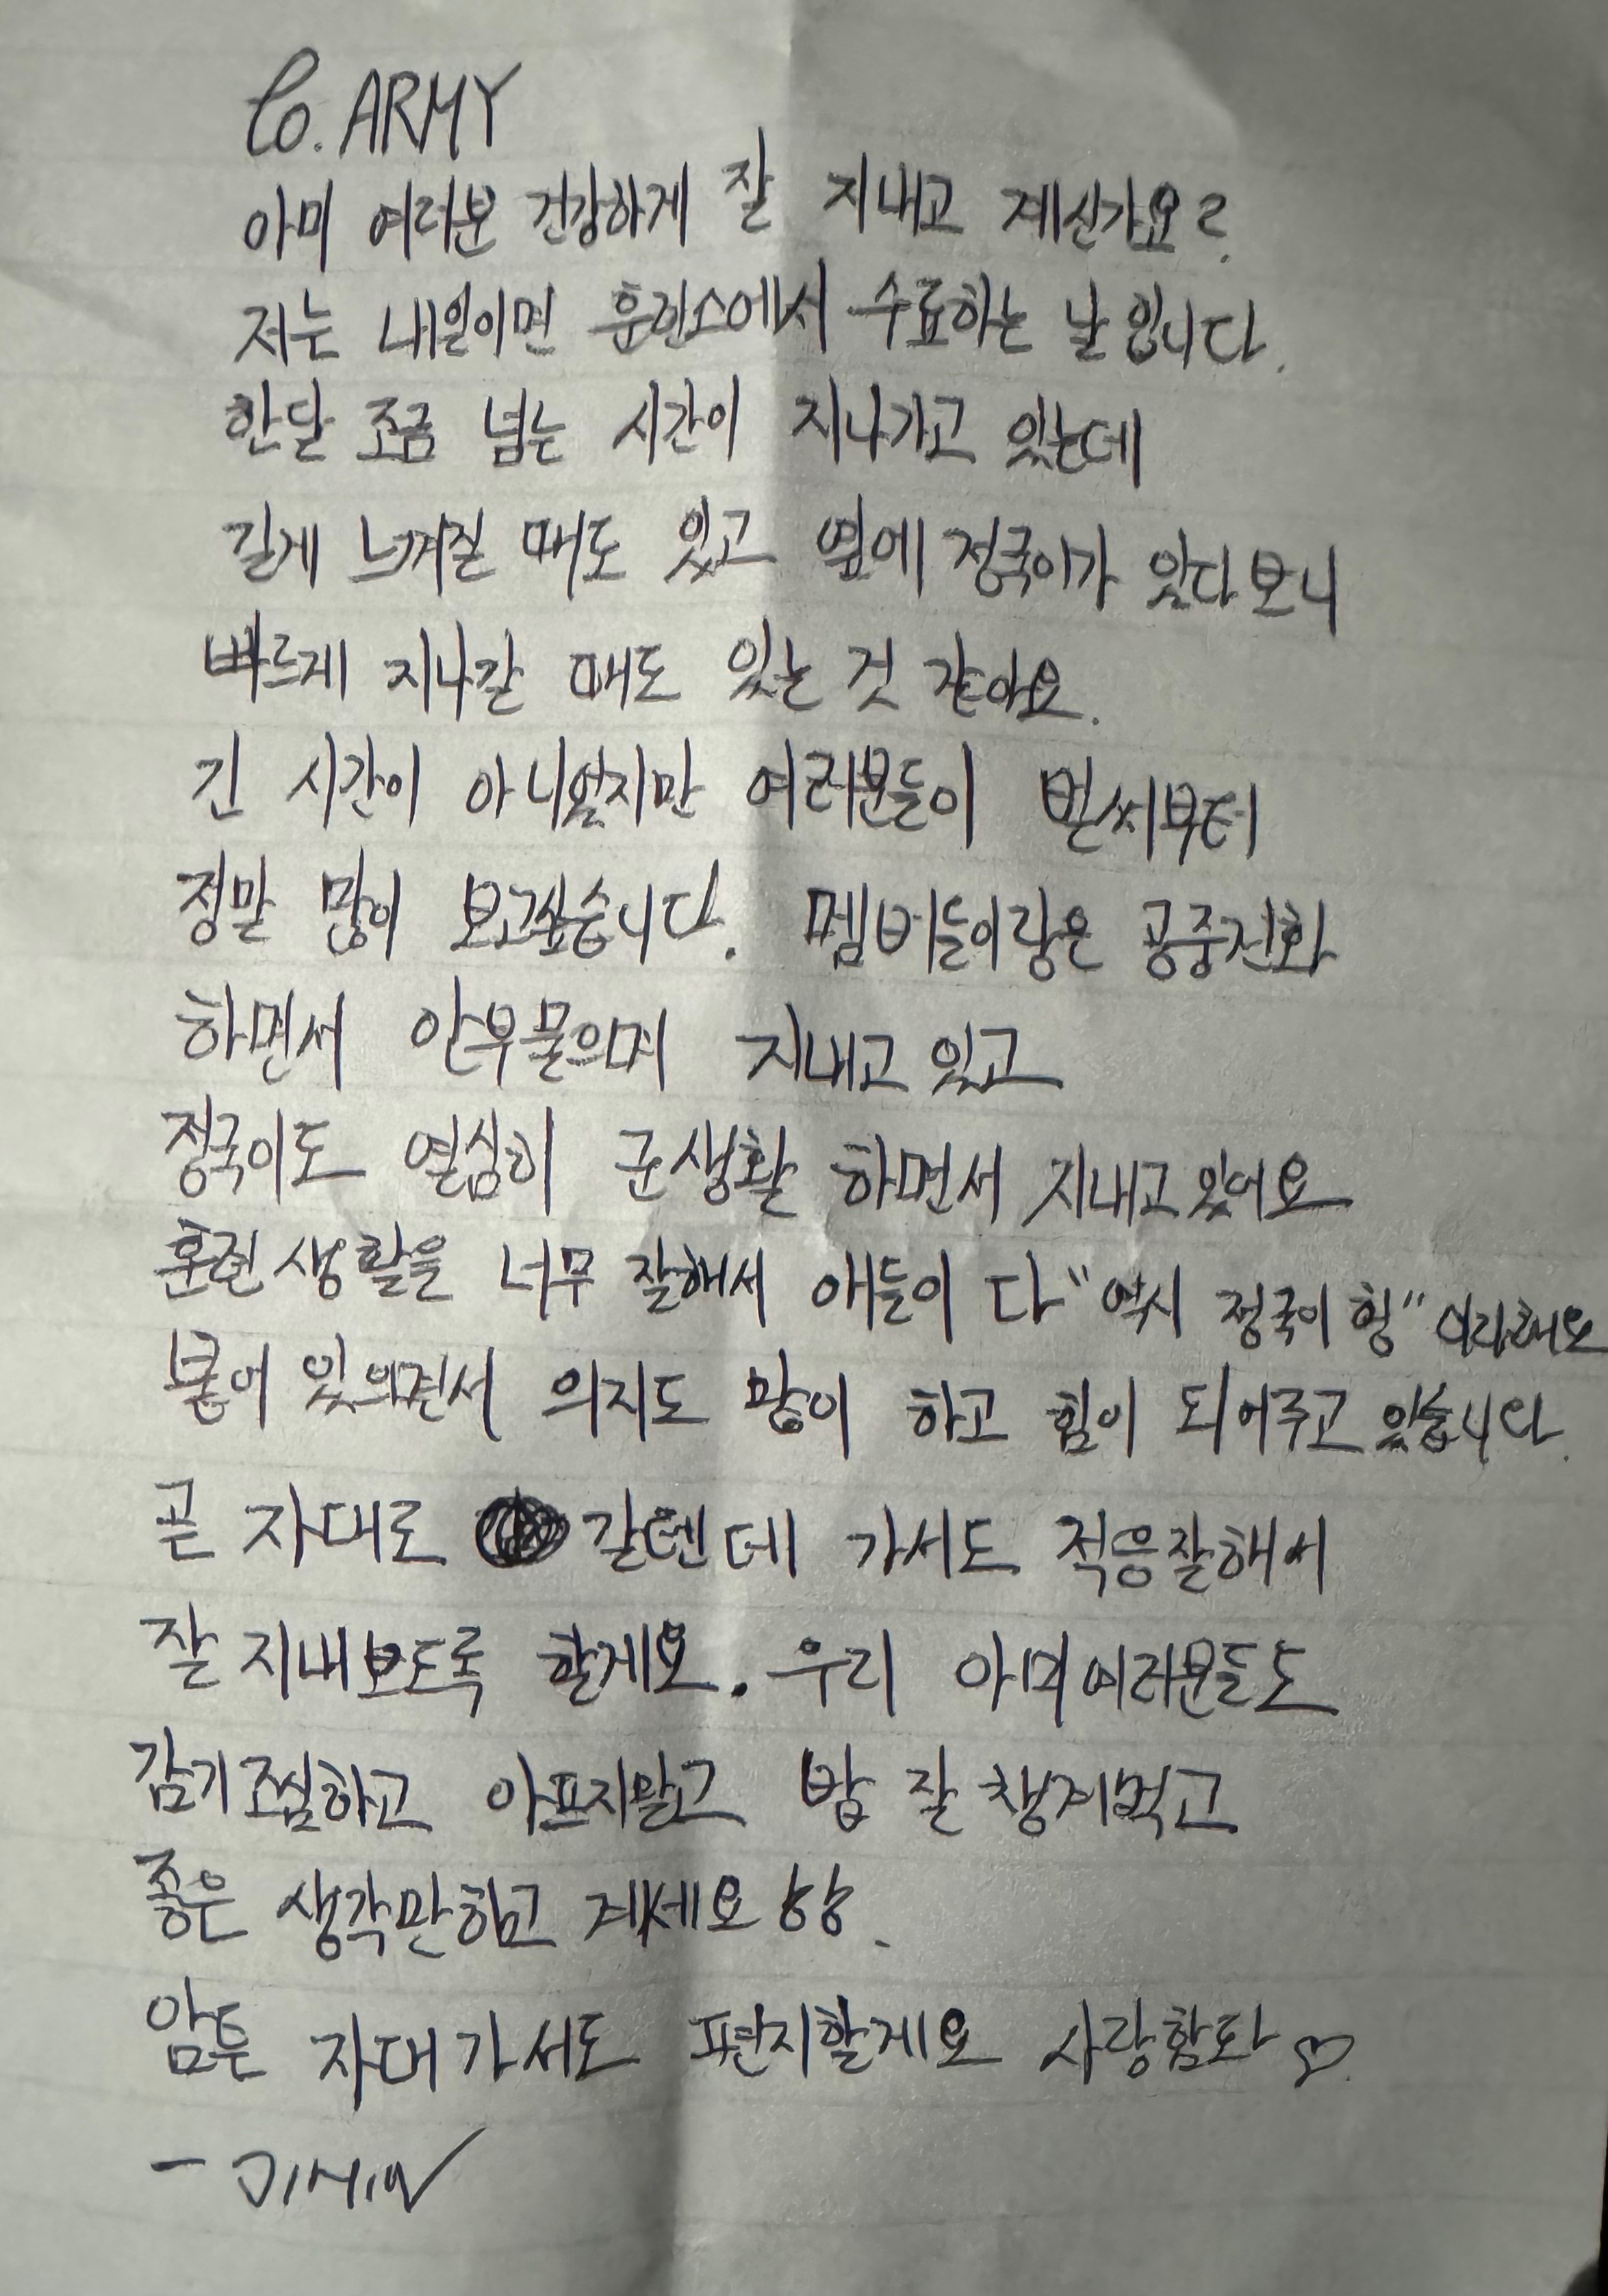 To. ARMY
아미 여러분 건강하게 잘 지내고 계신가요?
저는 내일이면 훈련소에서 수료하는 날입니다.
한달 조금 넘는 시간이 지나가고 있는데
길게 느껴질 때도 있고 옆에 정국이가 있다보니
빠르게 지나갈 때도 있는 것 같아요.
긴 시간이 아니였지만 여러분들이 벌써부터
정말 많이 보고싶습니다. 멤버들이랑은 공중전화
하면서 안부물으며 지내고 있고
정국이도 열심히 군생활 하면서 지내고있어요
훈련 생활을 너무 잘해서 애들이 다 "역시 정국이 형" 이라해요
붙어 있으면서 의지도 많이 하고 힘이 되어주고 있습니다.
곧 자대로 갈텐데 가서도 적응잘해서
잘 지내보도록 할게요. 우리 아미여러분들도
감기조심하고 아프지말고 밥 잘 챙겨먹고
좋은 생각만하고 계세요 항상.
암튼 자대가서도 편지할게요 사랑함돠 ♡.
- JIMIN